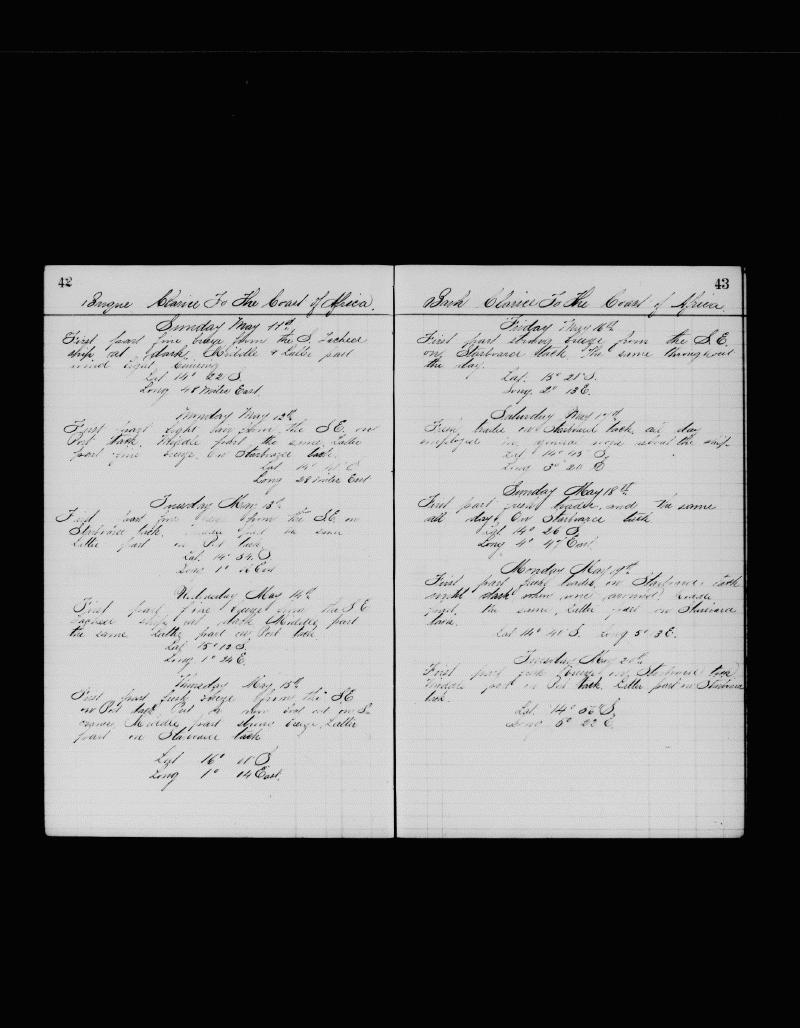 42
Brigne Clarice To The Coast of Africa.
Sunday May 11th
First part fine breeze from the S. Tacked
ship at dark. Middle & Latter part
wind light
Lat 14° 22 S.
Long 48 Miles East.
Monday May 12th
First part light from the S.E. on
Port tack. Middle part the same. Latter
part fine breeze. On Starboard tack.
Lat 14°
Long 28 Miles East
Tuesday May 13th
First part fine from the S.E. on
Starboard tack. part the same
Latter part on Port tack.
Lat. 14° 54 S.
Long 1° East
Wednesday May 14th
First part fine breeze from the S.E
Tacked ship at dark Middle part
the same Latter part on Port tack
Lat 15° 12 S.
Long 1° 24 E.
Thursday May 15th
First part fresh breeze from the S.E
on Port tack. Put a new out on
Middle part strong breeze. Latter
part on Starboard tack
Lat 16° 11 S
Long 1° 14 East.
43
Bark Clarice To The Coast of Africa
Friday May 16th
First part strong breeze from the S.E.
on Starboard tack. The same throughout
the day.
Lat. 15° 21 S.
Long. 2° 13 E.
Saturday May 17th
Fresh trades on Starboard tack all day
employed in general work about the ship.
Lat 14° 45 S,
Long 3° 20 E
Sunday May 18th
First part fresh trades, and the same
all day, On Starboard tack
Lat. 14° 26 S.
Long 4° 47 East.
Monday May 19th
First part fresh trades, on Starboard tack
until dark when wore around. Middle
part the same, Latter part on Starboard
tack.
Lat 14° 40 S. Long 5° 3 E.
Tuesday May 20th
First part fresh breeze on Starboard tack
Middle part on Port tack, Latter part on Starboard
tack.
Lat. 14° 56 S,
Long 6° 22 E.